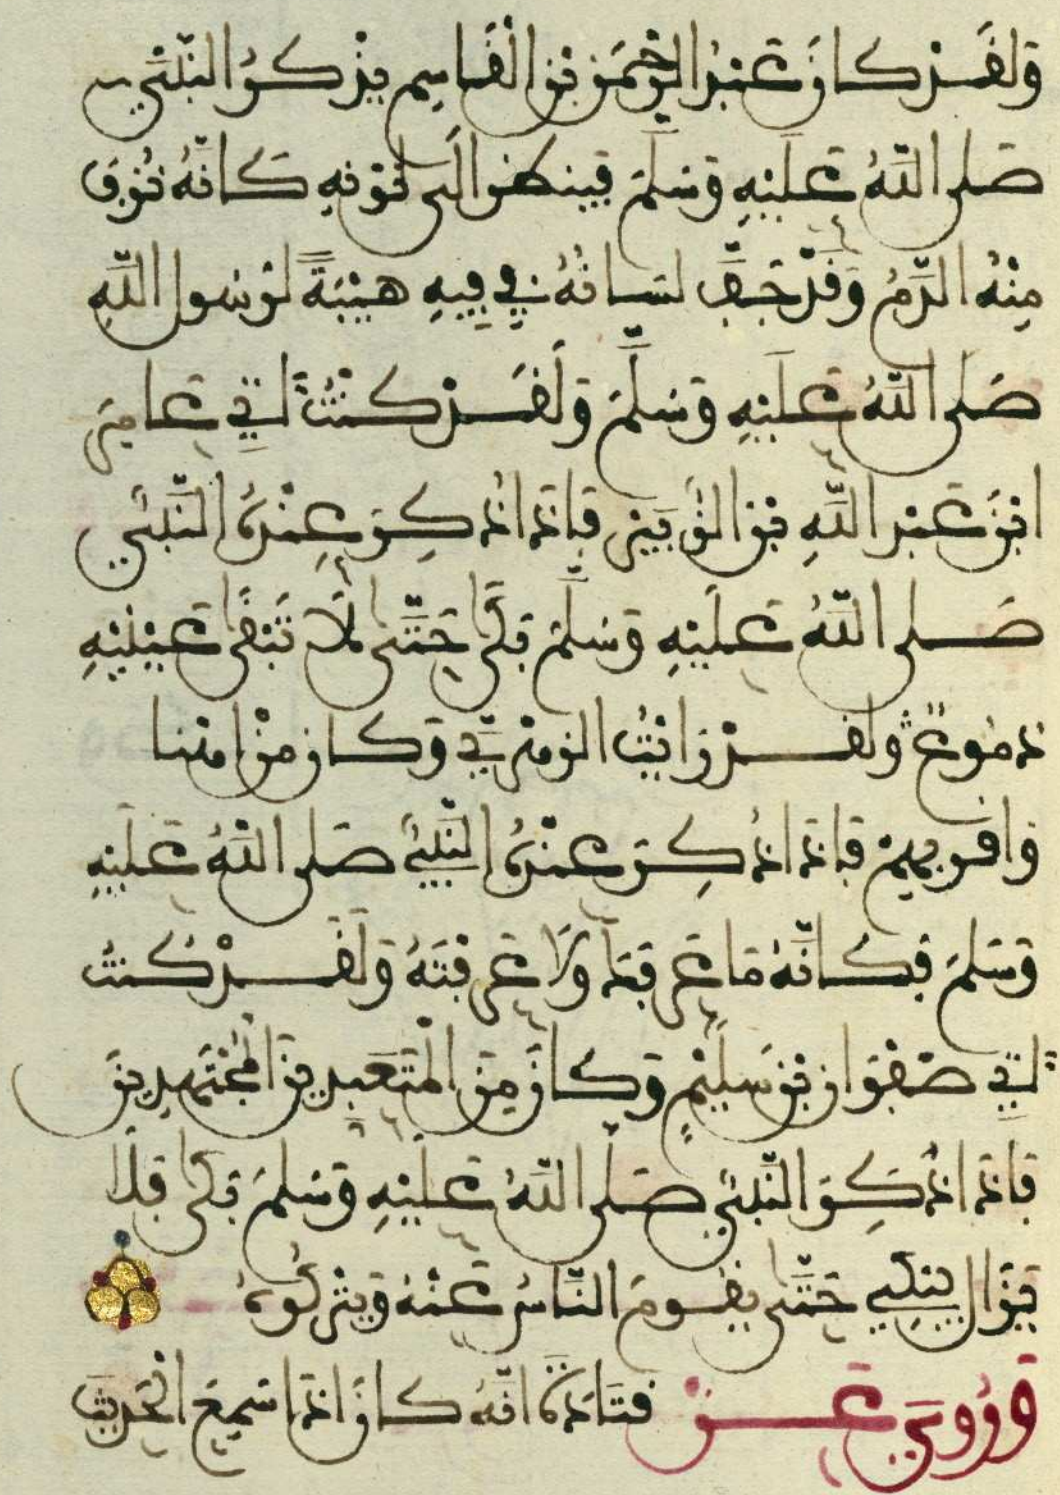 وَلَقَدْ كَانَ عَبْدُ الرَّحْمَنِ بْنُ الْقَاسِمِ يَذْكُرُ النَّبِيَّ
صَلَّى اللَّهُ عَلَيْهِ وَسَلَّمَ فَيُنْظَرُ إِلَى لَوْنِهِ كَأَنَّهُ نُزِفَ
مِنْهُ الدَّمُ وَقَدْ جَفَّ لِسَانُهُ فِي فِيهِ هَيْبَةً لِرَسُولِ اللَّهِ
صَلَّى اللَّهُ عَلَيْهِ وَسَلَّمَ وَلَقَدْ كُنْتُ ءَاتِي عَامِرَ
ابْنَ عَبْدِ اللَّهِ بْنِ الزُّبَيْرِ فَإِذَا ذُكِرَ عِنْدَهُ النَّبِيُّ
صَلَّى اللَّهُ عَلَيْهِ وَسَلَّمَ بَكَى حَتَّى لَا تَبْقَى عَيْنَيْهِ
دُمُوعٌ وَلَقَدْ رَأَيْتُ الزُّهْرِيَّ وَكَانَ مِنْ
فَإِذَا ذُكِرَ عِنْدَهُ النَّبِيُّ صَلَّى اللَّهُ عَلَيْهِ
وَسَلَّمَ فَكَأَنَّهُ مَا عَرَفَكَ وَلَا عَرَفْتَهُ وَلَقَدْ كُنْتُ
ءَاتِي صَفْوَانَ بْنَ سُلَيْمٍ وَكَانَ مِنَ الْمُتَعَبِّدِينَ الْمُجْتَهِدِينَ
فَإِذَا ذُكِرَ النَّبِيُّ صَلَّى اللَّهُ عَلَيْهِ وَسَلَّمَ بَكَى فَلَا
يَزَالُ يَبْكِي حَتَّى يَقُومَ النَّاسُ عَنْهُ وَيَتْرُكُوهُ
وَرُوِيَ عَنْ قَتَادَةَ أَنَّهُ كَانَ إِذَا سَمِعَ الْحَدِيثَ